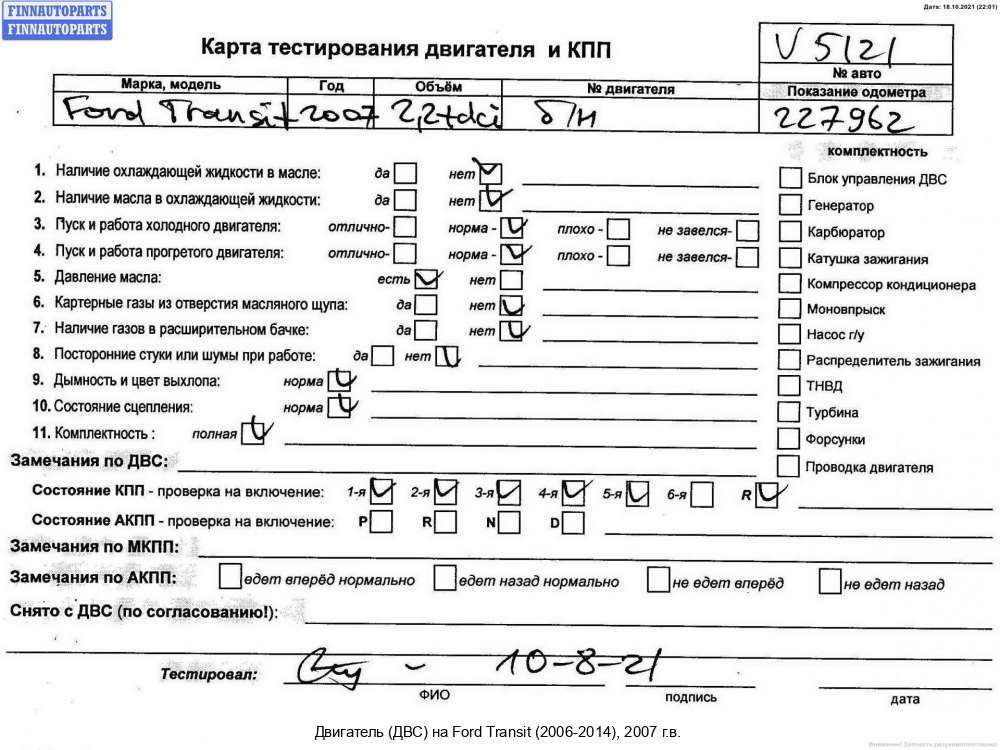 FINNAUTOPARTS
FINNAUTOPARTS
Дата: 18.10.2021 (22:01)
Карта тестирования двигателя и КПП
V 5121
№ авто
Марка, модель Год Объём № двигателя Показание одометра
Ford Transit 2007 2,2tdci б/н 227962
комплектность
1. Наличие охлаждающей жидкости в масле: да нет
Блок управления ДВС
2. Наличие масла в охлаждающей жидкости: да нет
Генератор
3. Пуск и работа холодного двигателя: отлично- норма - плохо - не завелся-
Карбюратор
4. Пуск и работа прогретого двигателя: отлично- норма - плохо - не завелся-
Катушка зажигания
5. Давление масла: есть нет
Компрессор кондиционера
6. Картерные газы из отверстия масляного щупа: да нет
Моновпрыск
7. Наличие газов в расширительном бачке: да нет
Насос г/у
8. Посторонние стуки или шумы при работе: да нет
Распределитель зажигания
9. Дымность и цвет выхлопа: норма
ТНВД
10. Состояние сцепления: норма
Турбина
11. Комплектность : полная
Форсунки
Замечания по ДВС:
Проводка двигателя
Состояние КПП - проверка на включение: 1-я 2-я 3-я 4-я 5-я 6-я R
Состояние АКПП - проверка на включение: P R N D
Замечания по МКПП:
Замечания по АКПП: едет вперёд нормально едет назад нормально не едет вперёд не едет назад
Снято с ДВС (по согласованию!):
Тестировал: - 10-8-21
ФИО подпись дата
Двигатель (ДВС) на Ford Transit (2006-2014), 2007 г.в.